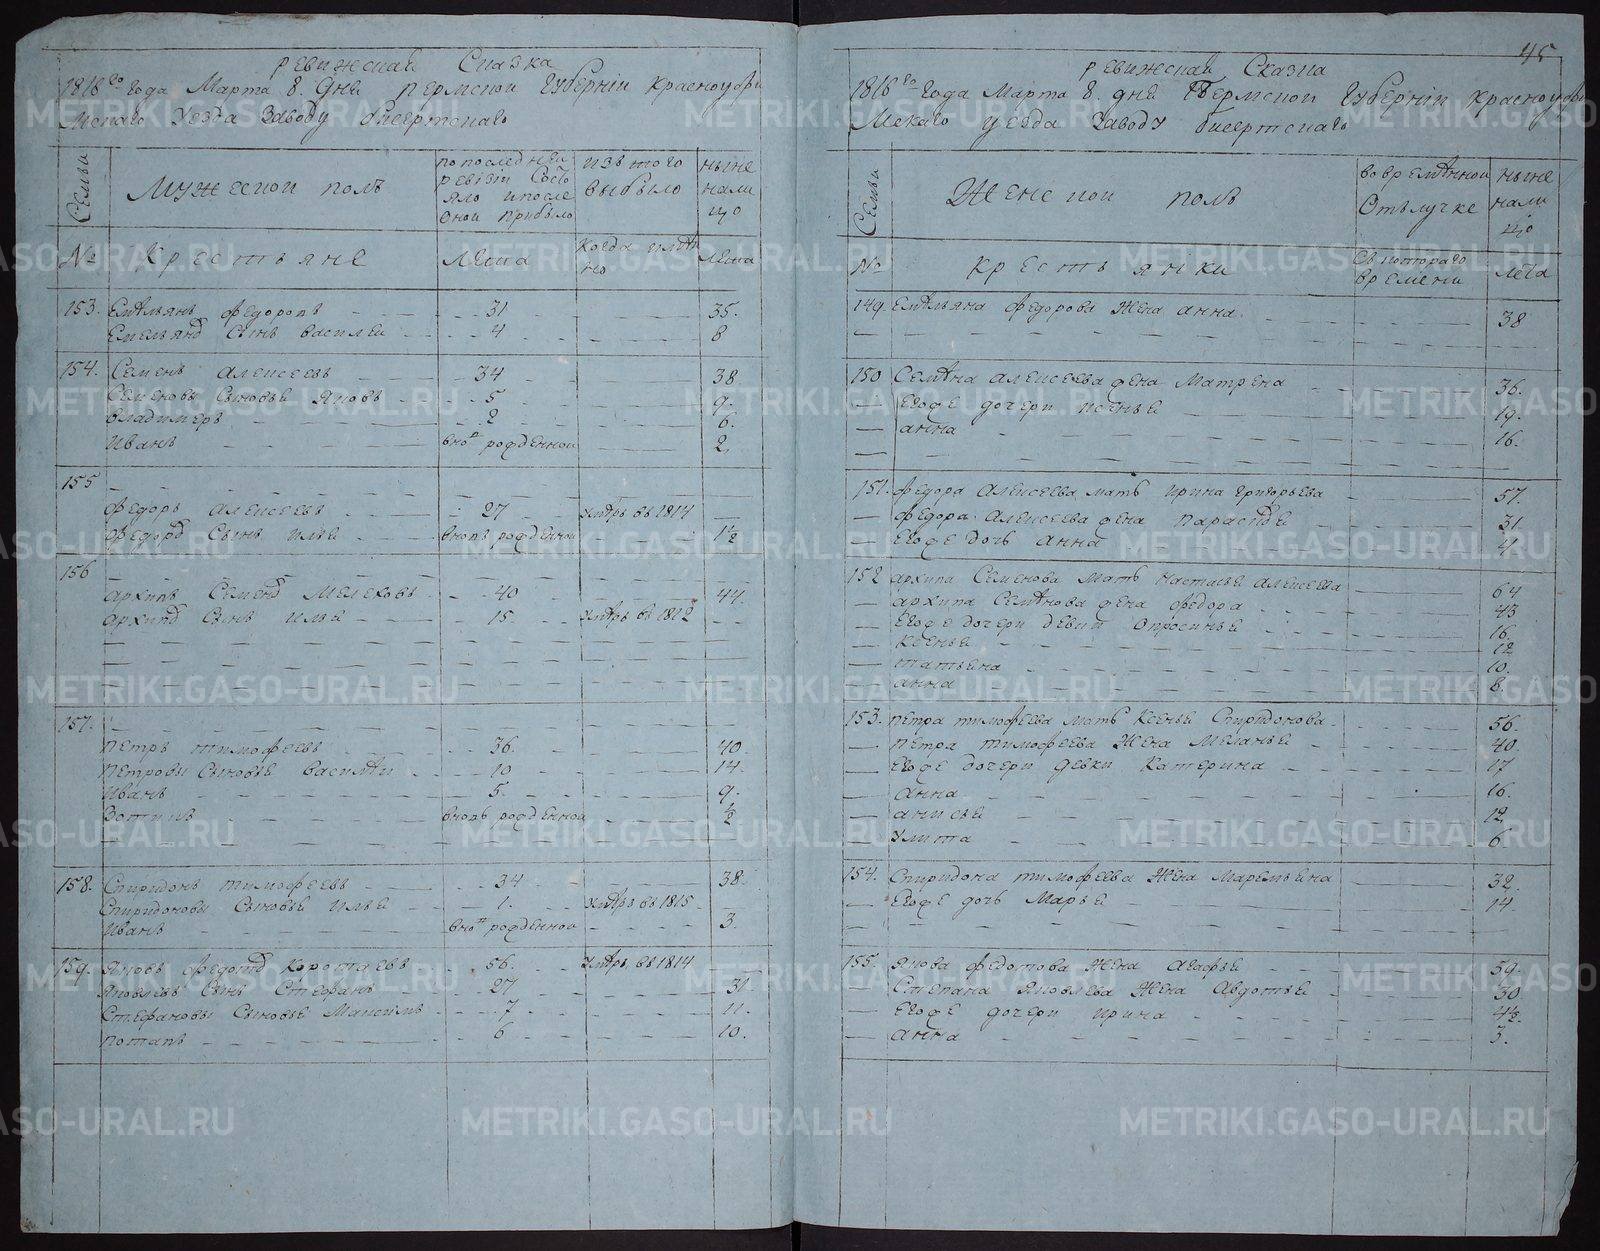 ревижская Сказка
1816го Года Марта 8. дня пермской губернiи красноуфи
Мскаго уезда Заводу бисертскаго
Семьи
Мужеской полъ
по последней ревизiи Состояло и после оной прибыло
изъ того выбыло
ныне налицо
№
Крестьяне
лета
когда имянно
лета
153. Емельянъ федоровъ 31 35.
Емельяна Сынъ василеи 4 8
154. Семенъ алексеевъ 34 38
Семеновы Сыновья яковъ 5 9.
владимеръ 2 6.
иванъ вновь рожденной 2.
155
федоръ алексеевъ 27 умеръ въ 1814
федора Сынъ илья вновь рожденной 1½
156
архипъ Семенов Мелековъ 40 44.
архипа Сынъ илья 15. умеръ въ 1812
157.
петръ тимофеевъ 36. 40.
петровы Сыновья василеи 10 14.
иванъ 5. 9.
Зотикъ вновь рожденной ½
158. Спиридонъ тимофеевъ 34 38.
Спиридоновы Сыновья илья 1. умеръ въ 1815
иванъ вновь рожденной 3.
159. яковъ федотов коротаевъ 56. умеръ въ 1814
яковлевъ Сынъ Стефанъ 27 31.
Стефановы Сыновья Максимъ 7 11.
потапъ 6 10.
45
ревижская Сказка
1816го Года Марта 8 дня Пермской губернiи красноуфи
Мскаго уезда Заводу бисертскаго
Семьи
Женской полъ
во временной Отълучке
ныне налицо
№
крестьянки
Съ котораго времени
лета
149. Емельяна федорова жена анна 38
150 Семена алексеева жена Матрена 36.
Егоже дочери ксенья 19.
анна 16.
151. федора алексеева мать ирина григорьева 57.
федора алексеева жена парасковья 31.
Егоже дочь анна 4
152 архипа Семенова мать настасья алексеева 64
архипа Семенова жена федора 43
Егоже дочери девки опросинья 16.
ксенья 12
татьяна 10.
анна 8.
153. петра тимофеева мать ксенья Спиридонова 56.
петра тимофеева жена меланья 40.
Егоже дочери девки катерина 17
анна 16.
анисья 12
улита 6
154. Спиридона тимофеева жена маремьяна 32.
Егоже дочь марья 14.
155. якова федотова жена агафья 59.
Степана яковлева жена авдотья 30
Егоже дочери ирина 4½.
анна 3.
METRIKI.GASO-URAL.RU